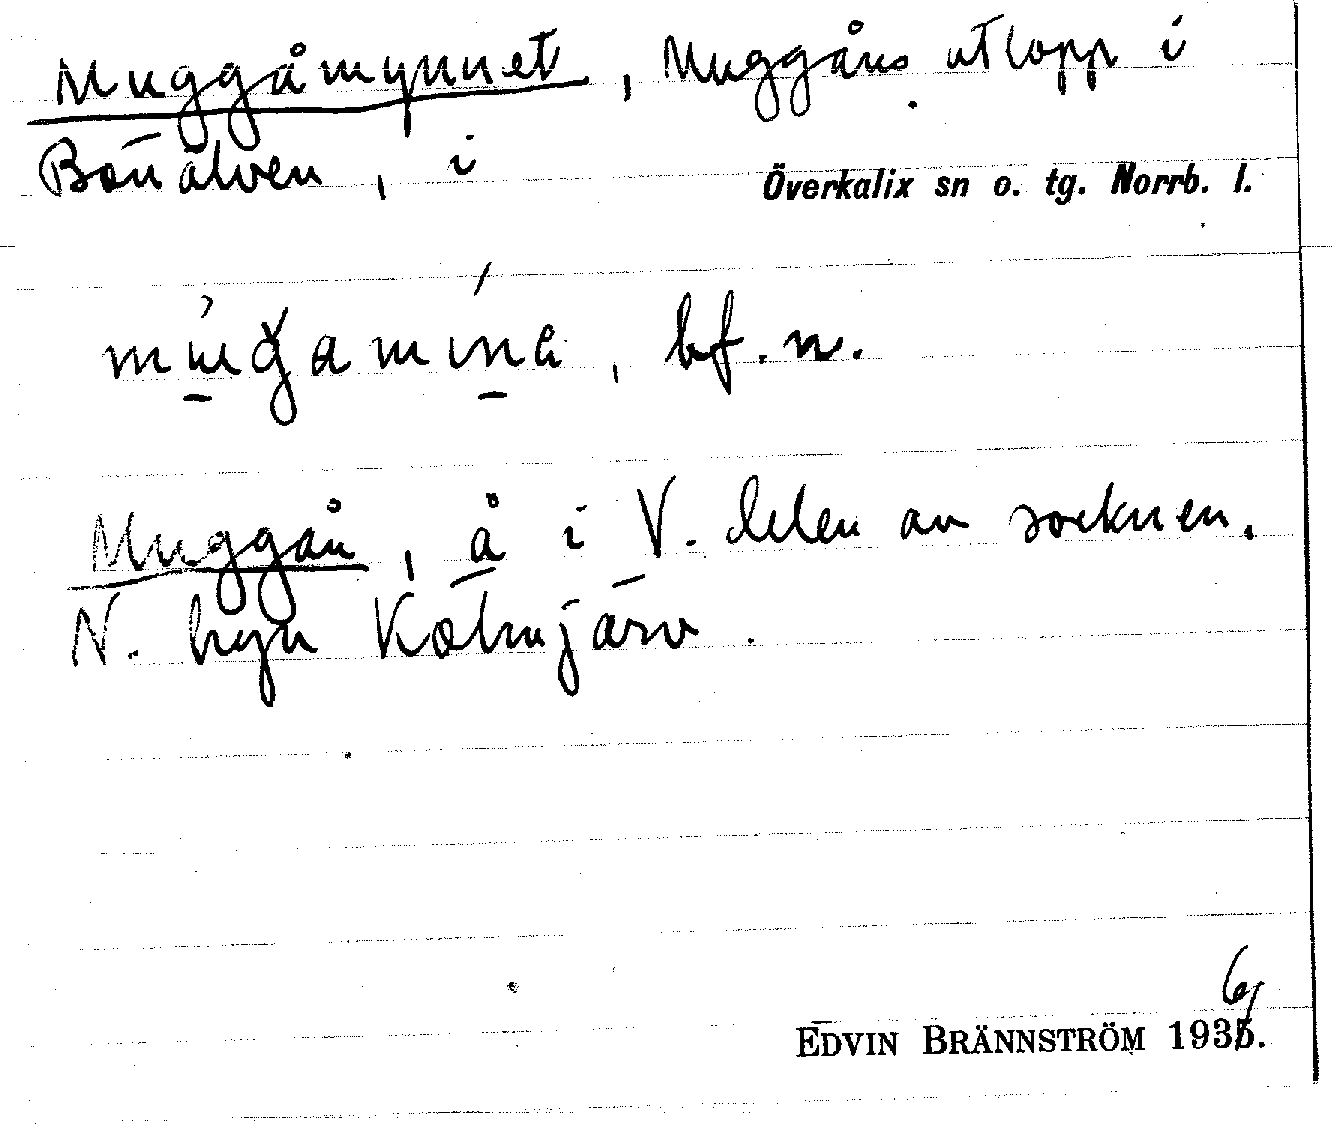 Muggåmynnet, Muggåns utlopp i
Bönälven, i
Överkalix sn o. tg. Norrb. l.
bf. n.
Muggån, å i V. delen av socknen,
N. byn Kölmjärv.
6
EDVIN BRÄNNSTRÖM 1935.